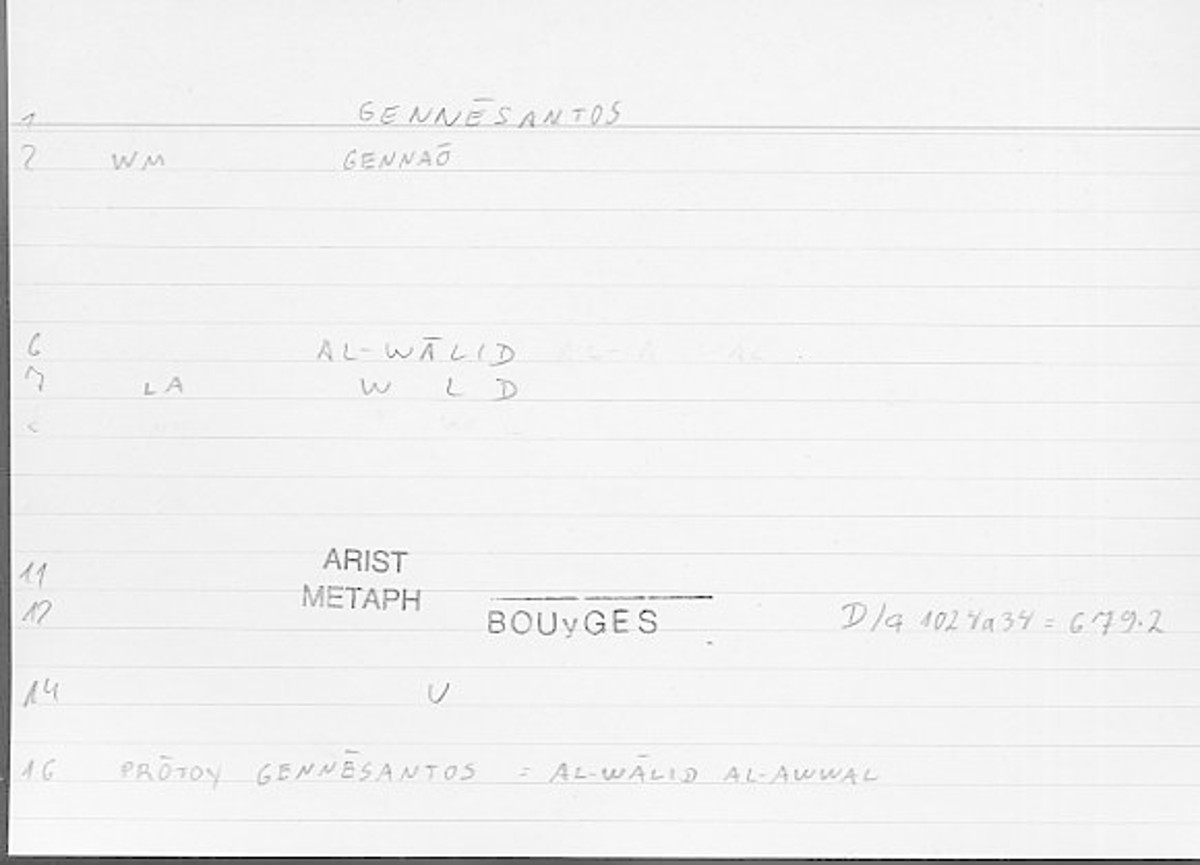 1 GENNĒSANTOS
2 WM GENNAŌ
6 AL-WĀLID
7 LA W L D
11 ARIST
METAPH
12 BOUyGES D/q 1024a34 = 679.2
14 U
16 PRŌTOY GENNĒSANTOS = AL-WĀLID AL-AWWAL